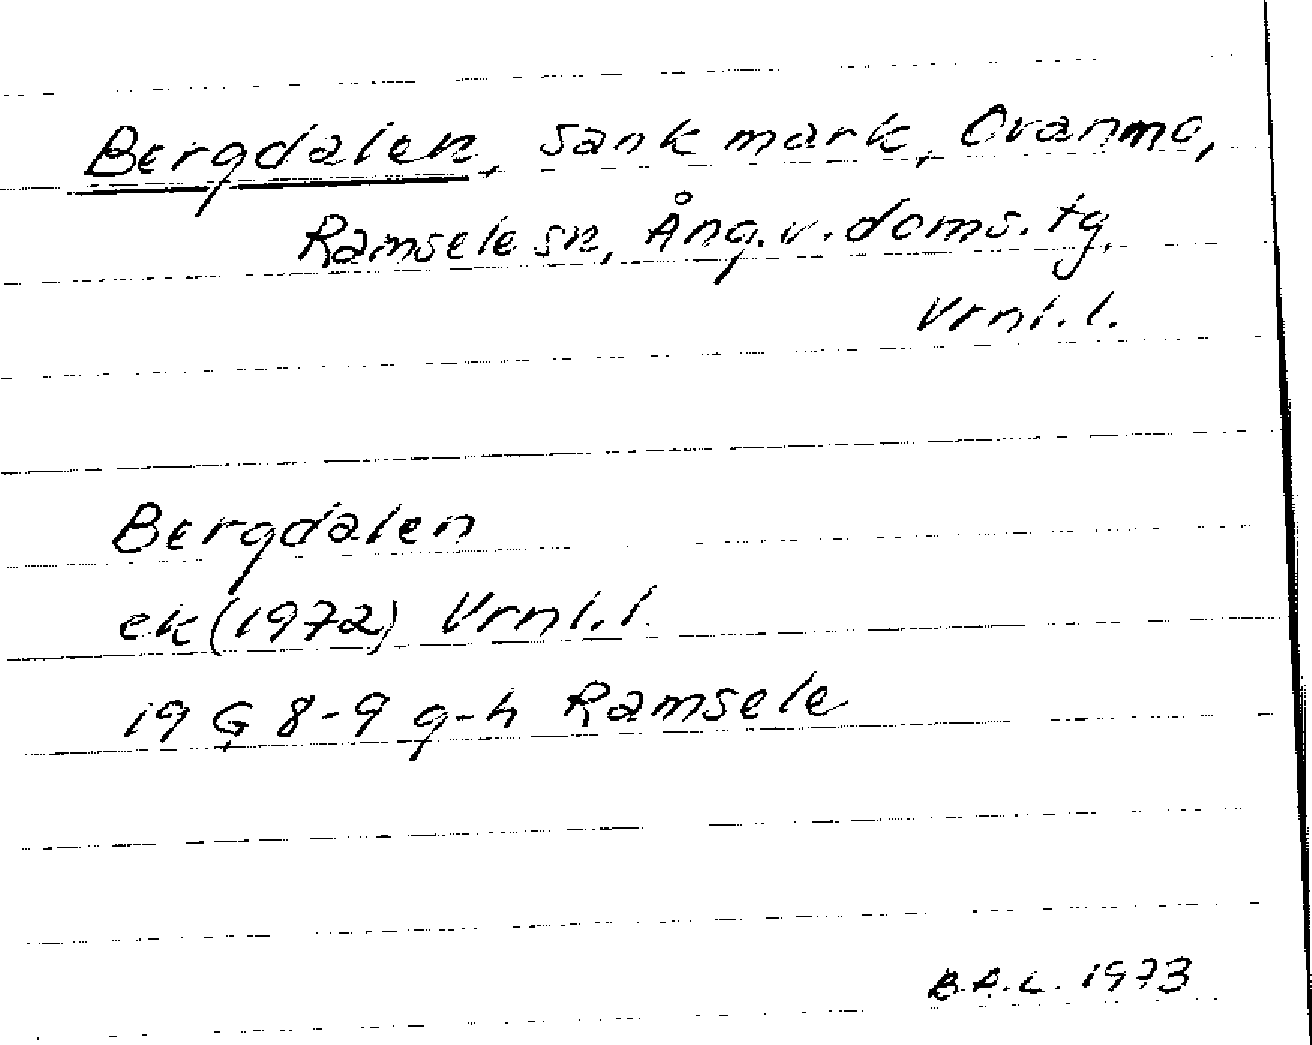 Bergdalen, sank mark, Ovanmo,
Ramsele sn, Ång. v. doms. tg.
Vrnl. l.
Bergdalen
ek (1972) Vrnl. l.
19 G 8-9 g-h Ramsele
B.A.L. 1973